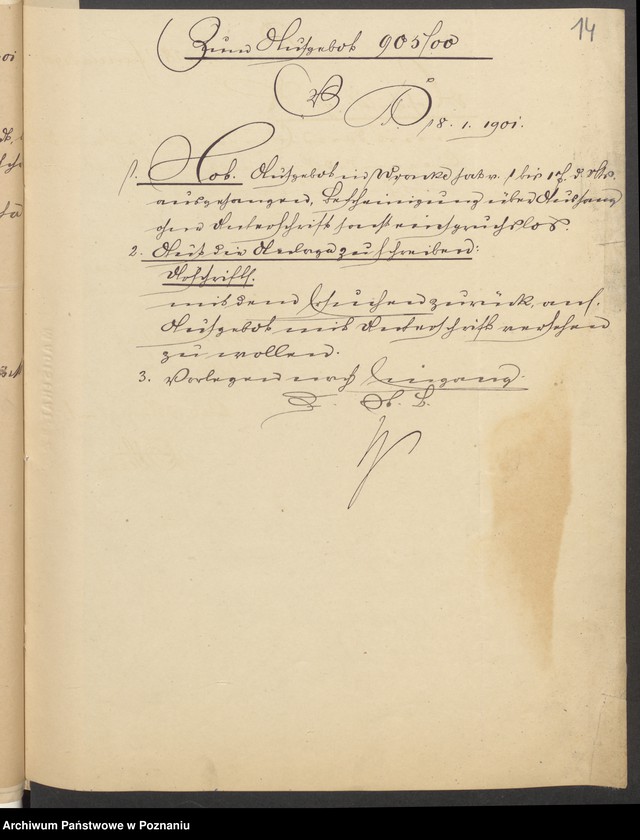 14
Zum Aufgebot 905/00
V
P. 18. 1. 1901.
1. Not. Aufgebot in Wronke hat v. 1 bis d. Mts.
ausgehangen, Bescheinigung über Aushang
ohne Unterschrift sonst einspruchslos.
2. Auf die Anlage zu schreiben:
Urschriftl.
mit dem Ersuchen zurück, anl.
Aufgebot mit Unterschrift versehen
zu wollen.
3. Vorlegen nach Eingang.
D. St. B.
oi
Archiwum Państwowe w Poznaniu